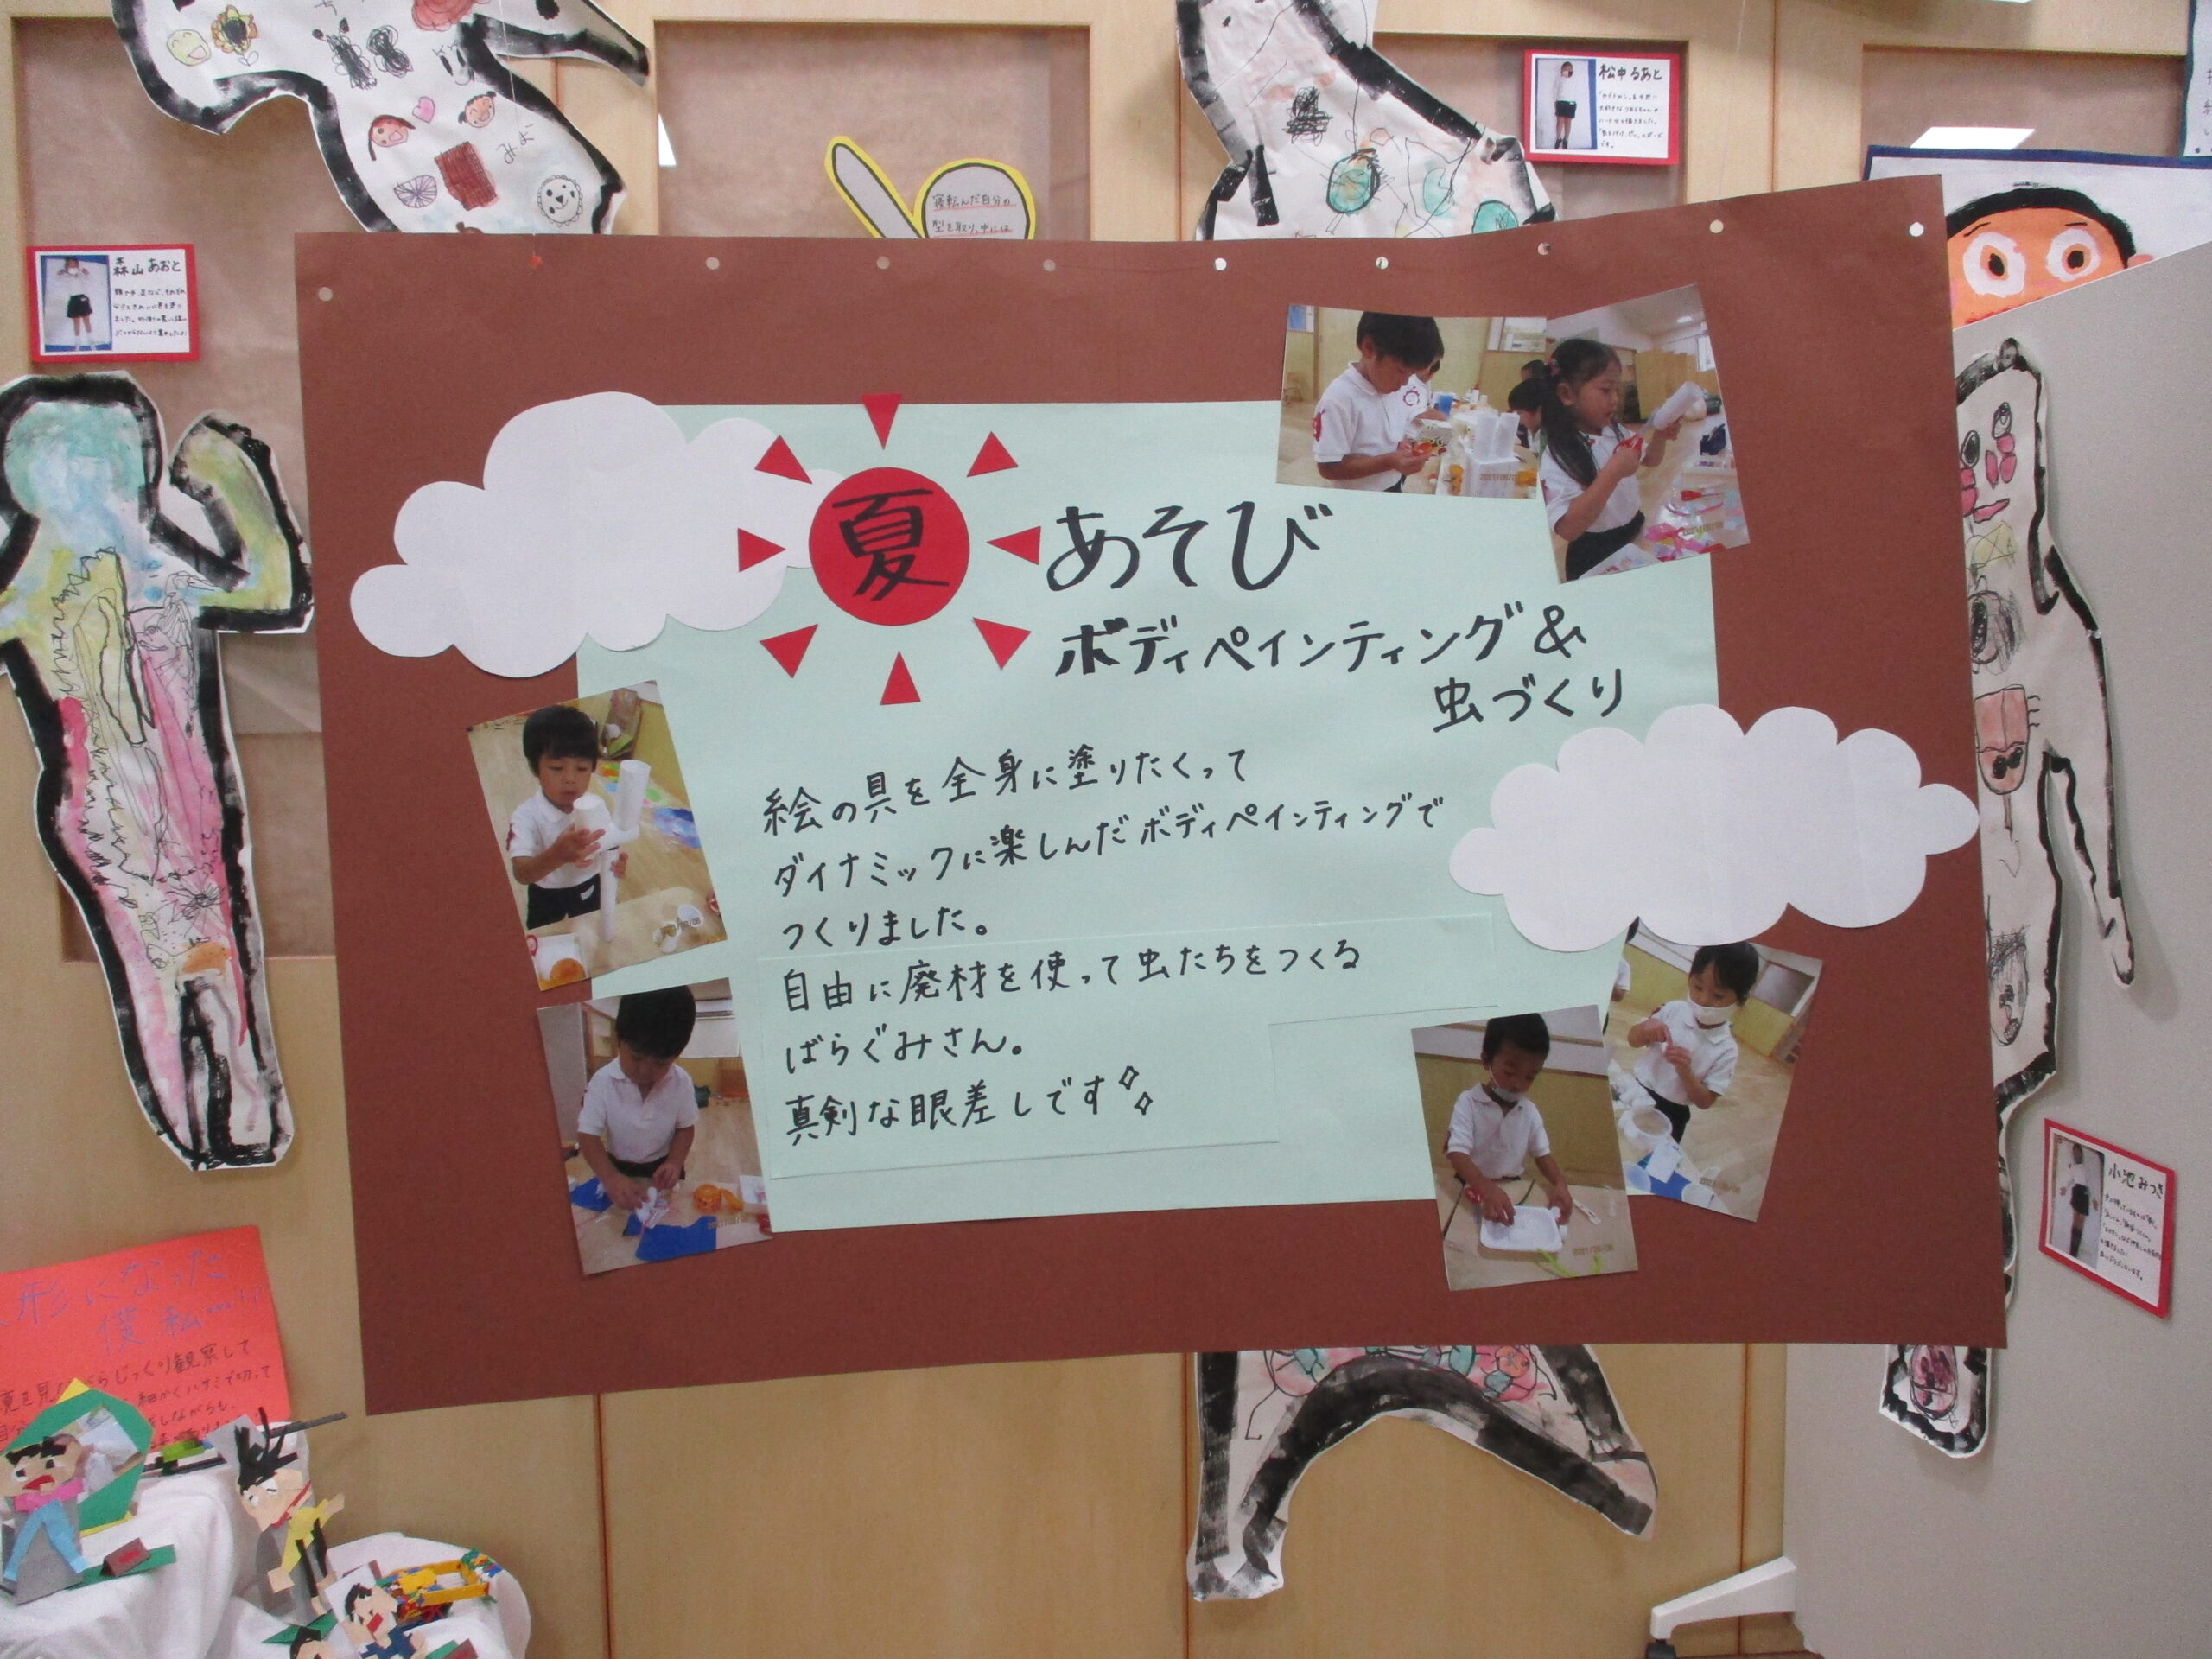 夏あそび
ボディペインティング&
虫づくり
絵の具を全身に塗りたくって
ダイナミックに楽しんだボディペインティングで
つくりました。
自由に廃材を使って虫たちをつくる
ばらぐみさん。
真剣な眼差しです
寝転んだ自分の
型を取り、中には
松中るあと
森山あおと
小池みつき
みよ
形になった
僕 私
じっくり観察して
細かくハサミで切って
しながらも、